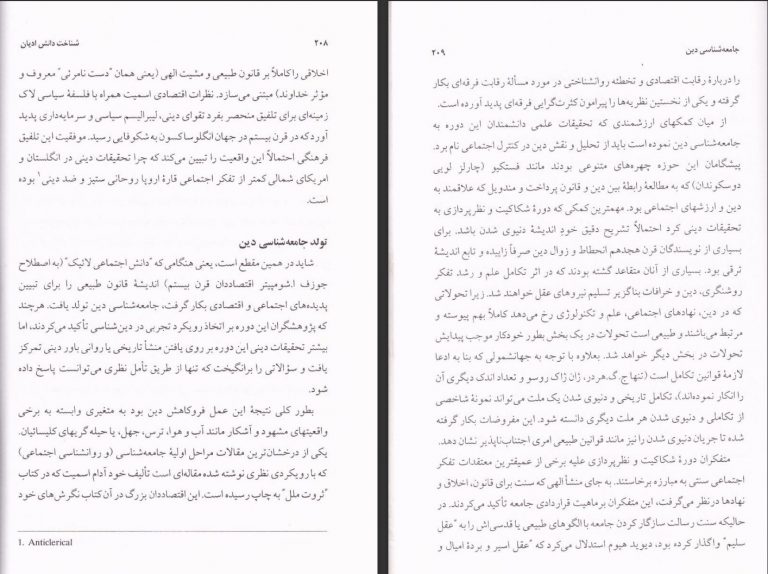 ۲۰۸ شناخت دانش ادیان
اخلاقی را کاملاً بر قانون طبیعی و مشیت الهی (یعنی همان "دست نامرئی" معروف و
مؤثر خداوند) مبتنی می‌سازد. نظرات اقتصادی اسمیت همراه با فلسفهٔ سیاسی لاک
زمینه‌ای برای تلفیق منحصر بفرد تقوای دینی، لیبرالیسم سیاسی و سرمایه‌داری پدید
آورد که در قرن بیستم در جهان انگلوساکسون به شکوفایی رسید. موفقیت این تلفیق
فرهنگی احتمالاً این واقعیت را تبیین می‌کند که چرا تحقیقات دینی در انگلستان و
امریکای شمالی کمتر از تفکر اجتماعی قارهٔ اروپا روحانی ستیز و ضد دینی۱ بوده
است.
تولد جامعه‌شناسی دین
شاید در همین مقطع است، یعنی هنگامی که "دانش اجتماعی لائیک" (به اصطلاح
جوزف ا.شومپیتر اقتصاددان قرن بیستم) اندیشهٔ قانون طبیعی را برای تبیین
پدیده‌های اجتماعی و اقتصادی بکار گرفت، جامعه‌شناسی دین تولد یافت. هرچند
که پژوهشگران این دوره بر اتخاذ رویکرد تجربی در دین‌شناسی تأکید می‌کردند، اما
بیشتر تحقیقات دینی این دوره بر روی یافتن منشأ تاریخی یا روانی باور دینی تمرکز
یافت و سؤالاتی را برانگیخت که تنها از طریق تأمل نظری می‌توانست پاسخ داده
شود.
بطور کلی نتیجهٔ این عمل فروکاهش دین بود به متغیری وابسته به برخی
واقعیتهای مشهود و آشکار مانند آب و هوا، ترس، جهل، یا حیله گریهای کلیسائیان.
یکی از درخشان‌ترین مقالات مراحل اولیهٔ جامعه‌شناسی (و روانشناسی اجتماعی)
که با رویکردی نظری نوشته شده مقاله‌ای است تألیف خود آدام اسمیت که در کتاب
"ثروت ملل" به چاپ رسیده است. این اقتصاددان بزرگ در آن کتاب نگرش‌های خود
1. Anticlerical
جامعه‌شناسی دین ۲۰۹
را دربارهٔ رقابت اقتصادی و تخطئه روانشناختی در مورد مسألهٔ رقابت فرقه‌ای بکار
گرفته و یکی از نخستین نظریه‌ها را پیرامون کثرت‌گرایی فرقه‌ای پدید آورده است.
از میان کمکهای ارزشمندی که تحقیقات علمی دانشمندان این دوره به
جامعه‌شناسی دین نموده است باید از تحلیل و نقش دین در کنترل اجتماعی نام برد.
پیشگامان این حوزه چهره‌های متنوعی بودند مانند فستکیو (چارلز لویی
دوسکوندان) که به مطالعهٔ رابطهٔ بین دین و قانون پرداخت و مندویل که علاقمند به
دین و ارزشهای اجتماعی بود. مهمترین کمکی که دورهٔ شکاکیت و نظرپردازی به
تحقیقات دینی کرد احتمالاً تشریح دقیق خود اندیشهٔ دنیوی شدن باشد. برای
بسیاری از نویسندگان قرن هجدهم انحطاط و زوال دین صرفاً زاییده و تابع اندیشهٔ
ترقی بود. بسیاری از آنان متقاعد گشته بودند که در اثر تکامل علم و رشد تفکر
روشنگری، دین و خرافات بناگزیر تسلیم نیروهای عقل خواهند شد. زیرا تحولاتی
که در دین، نهادهای اجتماعی، علم و تکنولوژی رخ می‌دهد کاملاً بهم پیوسته و
مرتبط می‌باشند و طبیعی است تحولات در یک بخش بطور خودکار موجب پیدایش
تحولات در بخش دیگر خواهد شد. بعلاوه با توجه به جهانشمولی که بنا به ادعا
لازمهٔ قوانین تکامل است (تنها ج.گ.هردر، ژان ژاک روسو و تعداد اندک دیگری آن
را انکار نموده‌اند)، تکامل تاریخی و دنیوی شدن یک ملت می‌تواند نمونهٔ شاخصی
از تکاملی و دنیوی شدن هر ملت دیگری دانسته شود. این مفروضات بکار گرفته
شده تا جریان دنیوی شدن را نیز مانند قوانین طبیعی امری اجتناب‌ناپذیر نشان دهد.
متفکران دورهٔ شکاکیت و نظرپردازی علیه برخی از عمیقترین معتقدات تفکر
اجتماعی سنتی به مبارزه برخاستند. به جای منشأ الهی که سنت برای قانون، اخلاق و
نهادها در نظر می‌گرفت، این متفکران بر ماهیت قراردادی جامعه تأکید می‌کردند. در
حالیکه سنت رسالت سازگار کردن جامعه با الگوهای طبیعی یا قدسی‌اش را به "عقل
سلیم" واگذار کرده بود، دیوید هیوم استدلال می‌کرد که "عقل اسیر و بردهٔ امیال و